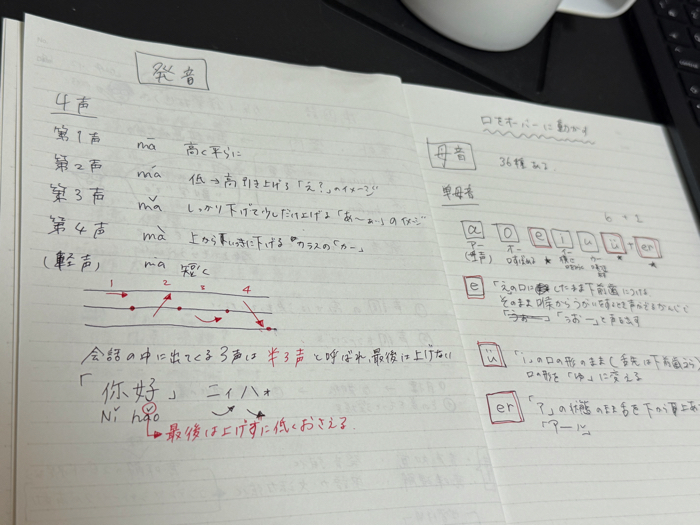 発音
4声
第1声 mā 高く平らに
第2声 má 低→高 引き上げる「え?」のイメージ
第3声 mǎ しっかり下げて少しだけ上げる「あ〜ぁぃ」のイメージ
第4声 mà 上から一気に下げる カラスの「カー」
(軽声) ma 短く
1 2 3 4
会話の中に出てくる3声は半3声と呼ばれ最後は上げない
「你好」 ニィハォ
Nǐ hǎo
最後は上げずに低くおさえる.
口をオーバーに動かす
母音 36種ある.
単母音
6+1
a o e i u ü + er
アー オー イー ウー
(軽声)
e 「え」の口にしたまま下前歯につける
「うぉー」と声を出す
ü 「i」の口の形のまま(舌先は下前歯うら)
口の形を「ゆ」に変える
er 「ア」の状態のまま舌を下から
「アール」